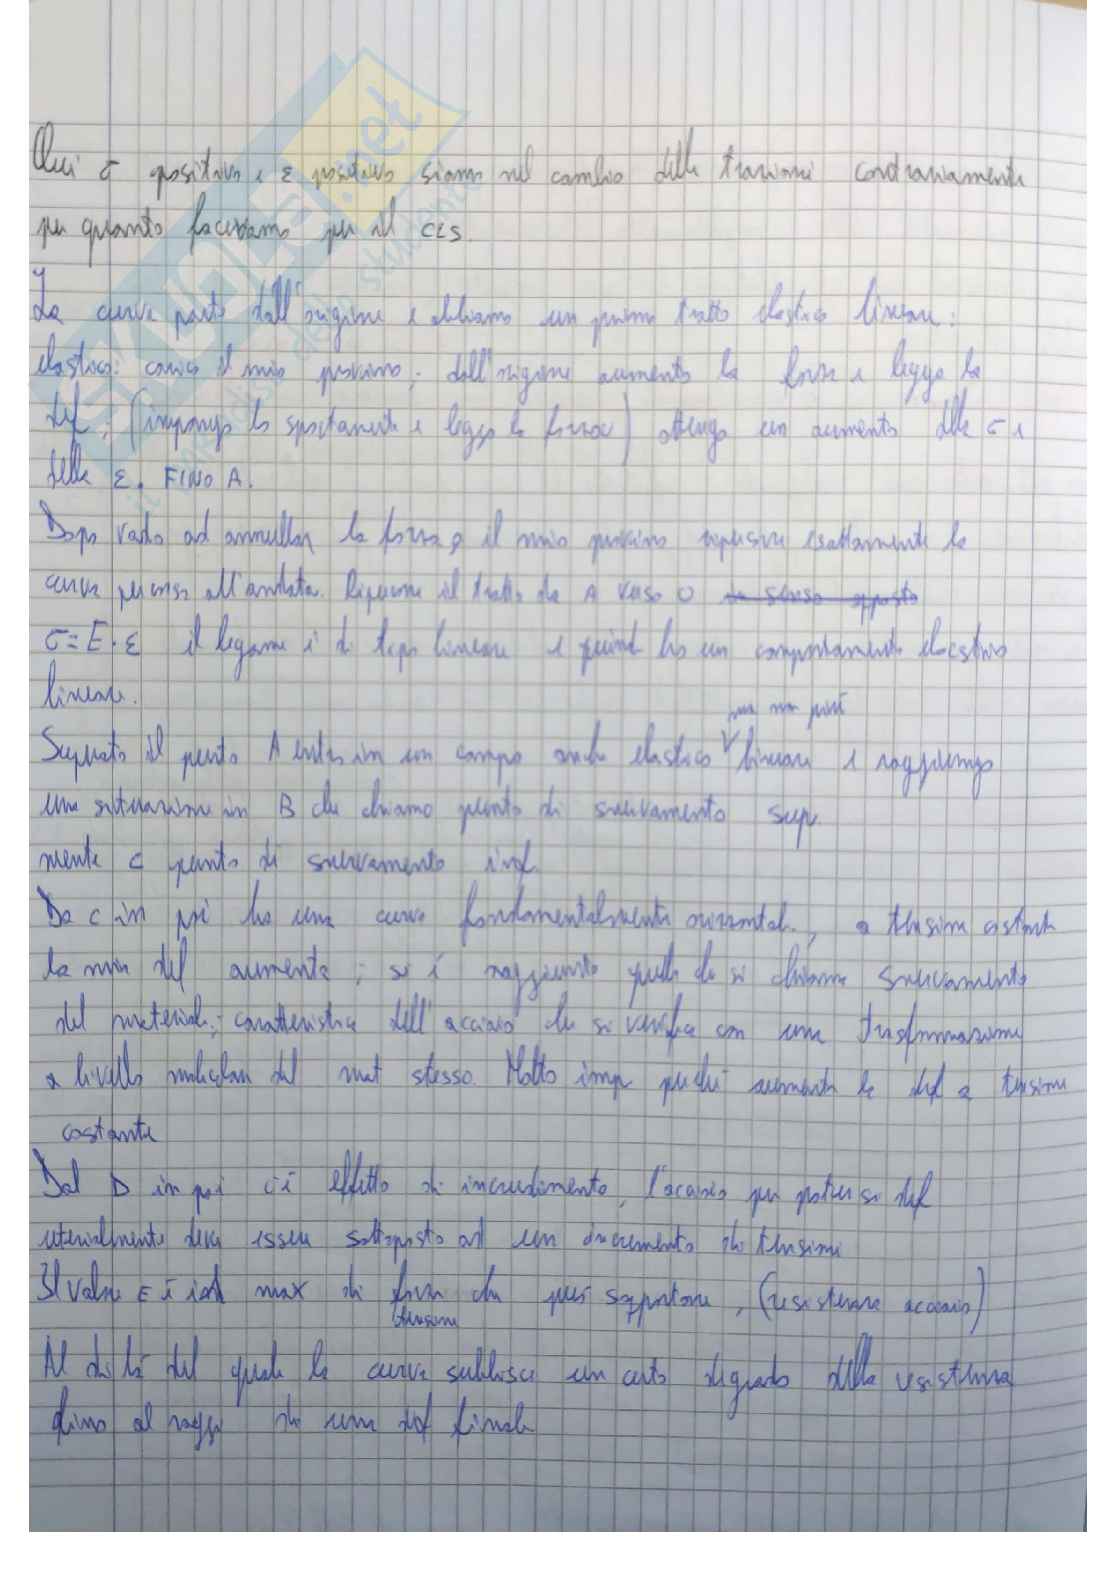 Qui σ positivo e ε positivo siamo nel cambio delle trazioni contrariamente
per quanto facevamo per il CLS.
La curva parte dall'origine e abbiamo un primo tratto elastico lineare:
elastico: carico il mio provino, dall'origine aumento la forza e leggo la
def, (impongo lo spostamento e leggo la forza) ottengo un aumento delle σ e
delle ε. FINO A.
Dopo vado ad annullare la forza, il mio provino ripercorre esattamente la
curva percorsa all'andata. Ripercorre il tratto da A verso O senso opposto
σ = E · ε il legame è di tipo lineare e quindi ho un comportamento elastico
lineare.
ma non più
Superato il punto A entro in un campo anche elastico lineare e raggiungo
una situazione in B che chiamo punto di snervamento sup
mentre C punto di snervamento inf.
Da C in poi ho una curva fondamentalmente orizzontale, a tensione costante
la mia def aumenta; si è raggiunto quello che si chiama snervamento
del materiale, caratteristica dell'acciaio che si verifica con una trasformazione
a livello molecolare del mat stesso. Molto imp perché aumenta la def a tensione
costante
Dal D in poi c'è effetto di incrudimento, l'acciaio per potersi def
ulteriormente deve essere sottoposto ad un incremento di tensione
Il valore E è il max di forza che può sopportare, (resistenza acciaio)
tensione
Al di là del quale la curva subisce un certo degrado della resistenza
fino al ragg di una def finale